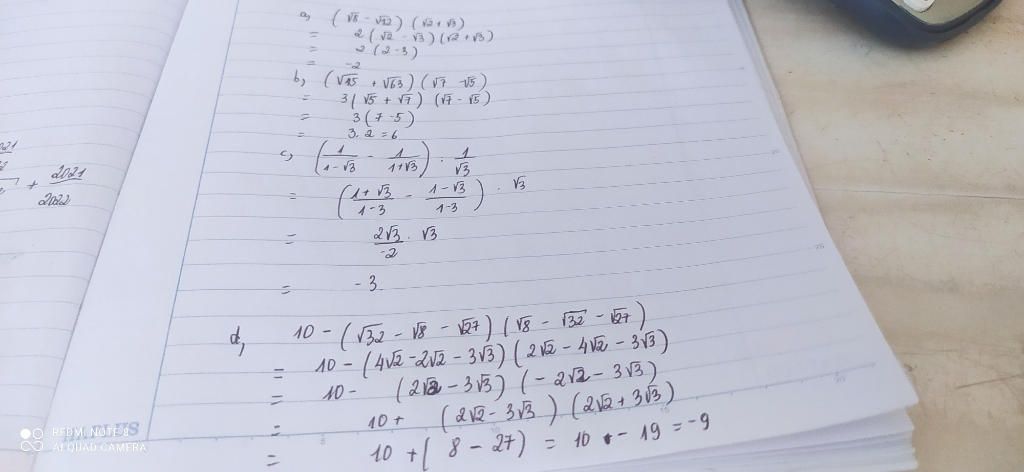 a, (√8 - √12) (√2 + √3)
= 2 (√2 - √3) (√2 + √3)
= 2 (2 - 3)
= -2
b, (√45 + √63) (√7 - √5)
= 3 (√5 + √7) (√7 - √5)
= 3 (7 - 5)
= 3. 2 = 6
c, (1/(1-√3) - 1/(1+√3)) : 1/√3
= ((1+√3)/(1-3) - (1-√3)/(1-3)) . √3
= 2√3/-2 . √3
= -3
d, 10 - (√32 - √8 - √27) (√8 - √32 - √27)
= 10 - (4√2 - 2√2 - 3√3) (2√2 - 4√2 - 3√3)
= 10 - (2√2 - 3√3) (-2√2 - 3√3)
= 10 + (2√2 - 3√3) (2√2 + 3√3)
= 10 + (8 - 27) = 10 - 19 = -9
+ 2021/2022
REDMI NOTE 8
AI QUAD CAMERA